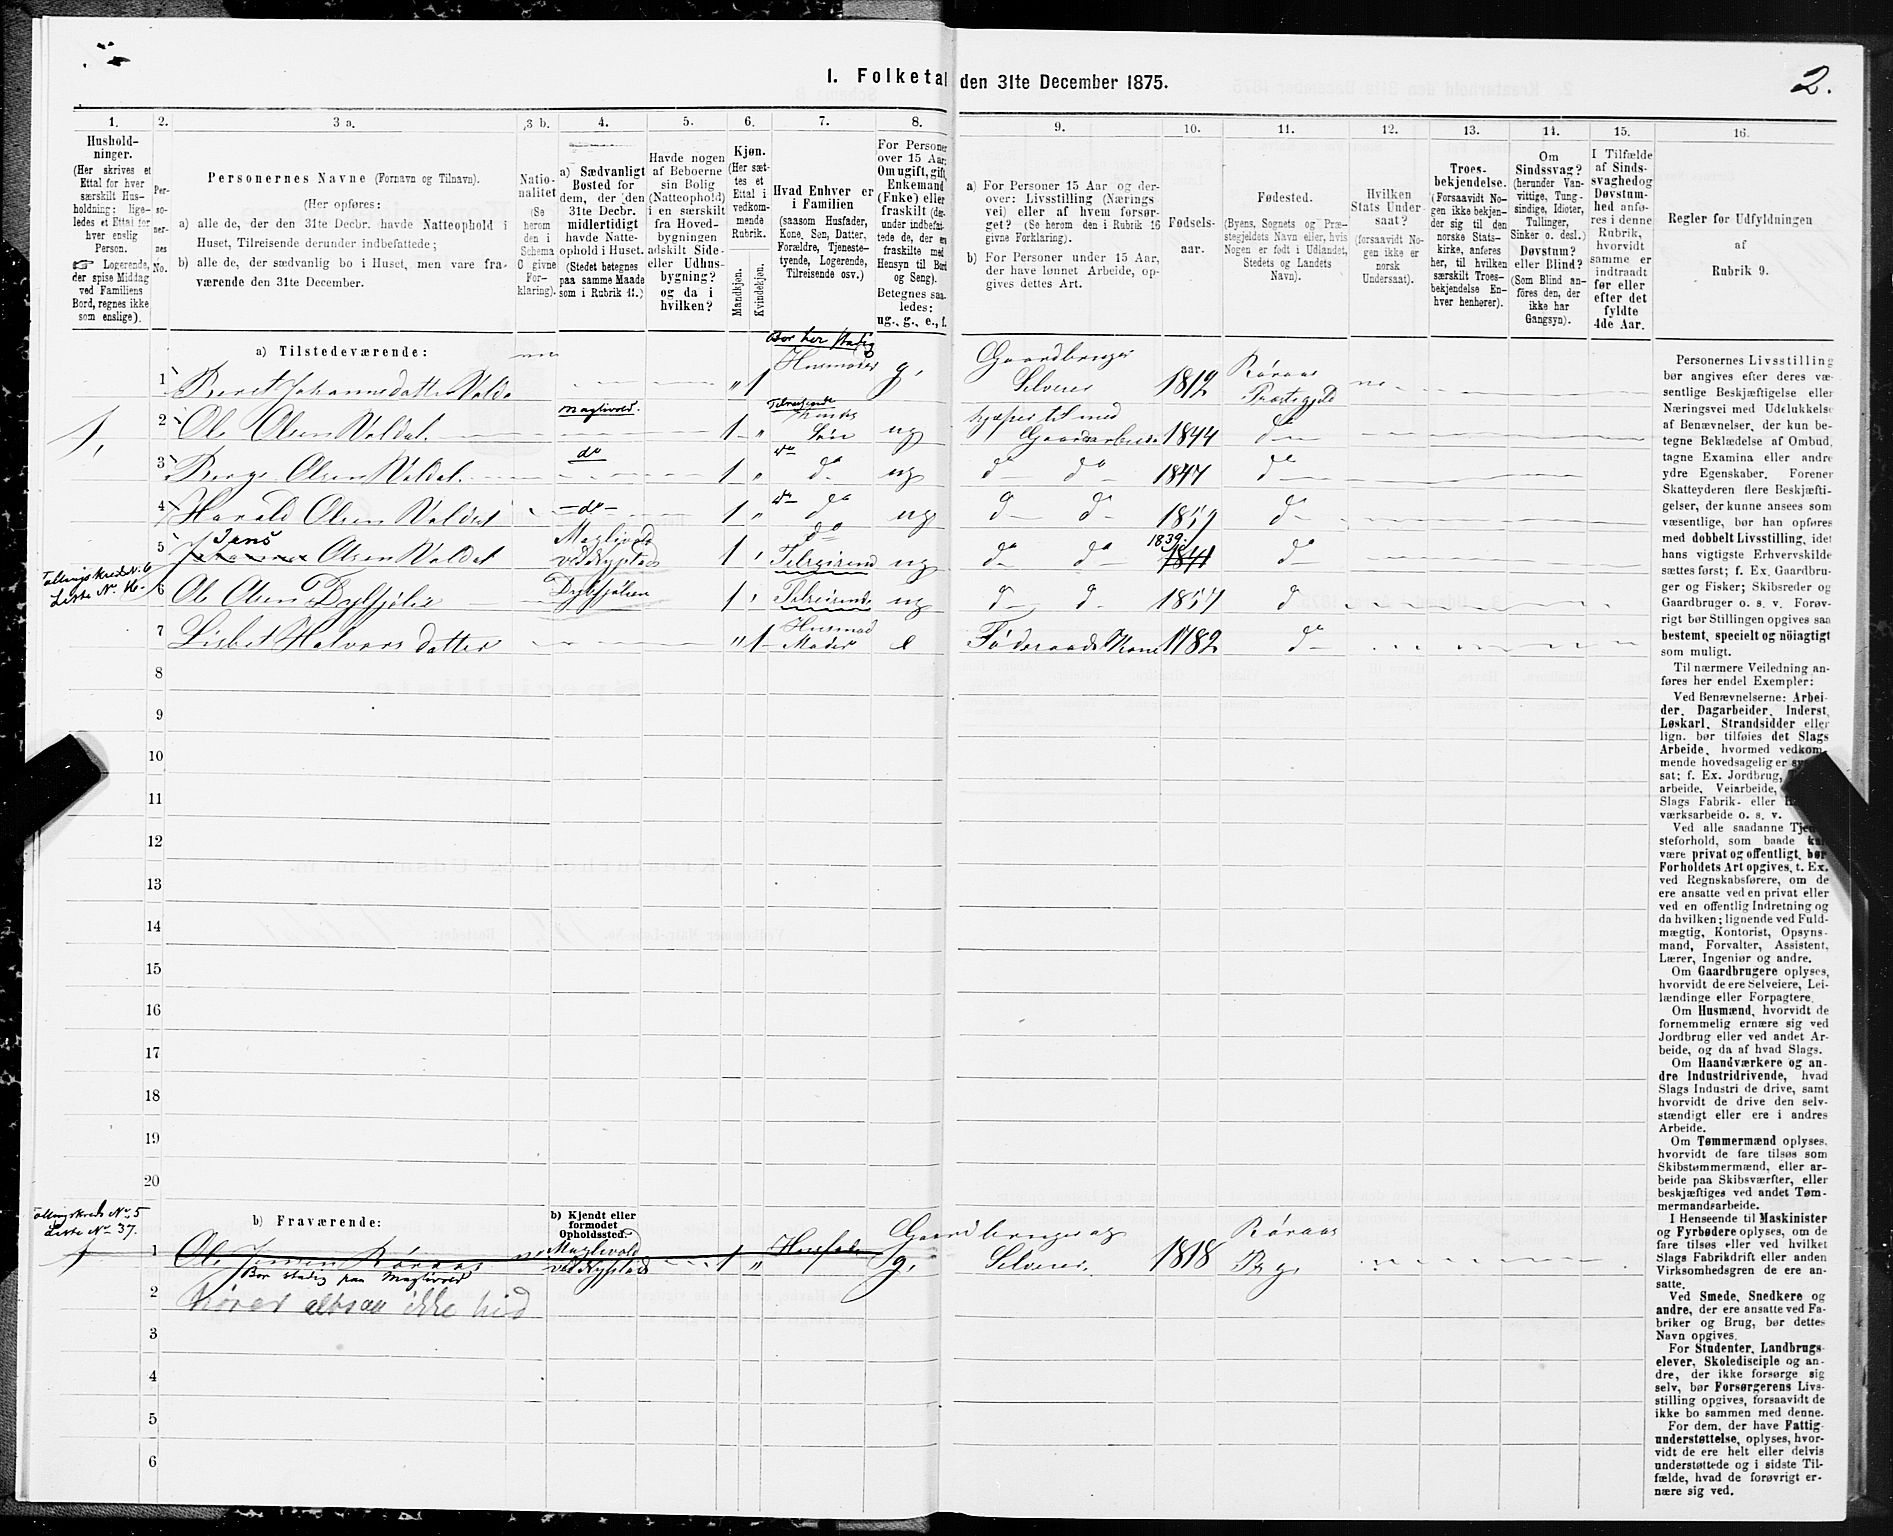 I. Folketal den 31te December 1875.
2.
1.
Hushold-
ninger.
(Her skrives et
Ettal for hver
særskilt Hus-
holdning; lige-
ledes et Ettal for
hver enslig
Person.
☞ Logerende,
der spise Middag
ved Familiens
Bord, regnes ikke
som enslige).
2.
Per-
so-
ner-
nes
No.
3 a.
Personernes Navne (Fornavn og Tilnavn).
(Her opføres:
a) alle de, der den 31te Decbr. havde Natteophold i
Huset, Tilreisende derunder indbefattede;
b) alle de, der sædvanlig bo i Huset, men vare fra-
værende den 31te December.
3 b.
Natio-
nalitet
(Se
herom
den i
Schema
O givne
For-
klaring).
4.
a) Sædvanligt
Bosted for
dem, der den
31te Decbr.
midlertidigt
havde Natte-
ophold i Huset.
(Stedet betegnes
paa samme Maade
som i Rubrik 11.)
5.
Havde nogen
af Beboerne
sin Bolig
(Natteophold)
i en særskilt
fra Hoved-
bygningen
adskilt Side-
eller Udhus-
bygning?
og da i
hvilken?
6.
Kjøn.
(Her sæt-
tes et
Ettal i
vedkom-
mende
Rubrik.
Mandkjøn.
Kvindekjøn.
7.
Hvad Enhver er
i Familien
(saasom Husfader,
Kone, Søn, Datter,
Forældre, Tjeneste-
tyende, Logerende,
Tilreisende osv.)
8.
For Personer
over 15 Aar:
Om ugift, gift,
Enkemand
(Enke) eller
fraskilt (der-
under indbefat-
tede de, der ere
fraskilte med
Hensyn til Bord
og Seng).
Betegnes saa-
ledes:
ug., g., e., f.
9.
a) For Personer 15 Aar og der-
over: Livsstilling (Nærings-
vei) eller af hvem forsør-
get? (Se herom den i Rubrik 16
givne Forklaring).
b) For Personer under 15 Aar,
der have lønnet Arbeide, op-
gives dettes Art.
10.
Fødsels-
aar.
11.
Fødested.
(Byens, Sognets og Præ-
stegjeldets Navn eller, hvis
Nogen er født i Udlandet,
Stedets og Landets
Navn).
12.
Hvilken
Stats Under-
saat?
(forsaavidt No-
gen ikke er
norsk
Undersaat).
13.
Troes-
bekjendelse.
(Forsaavidt No-
gen ikke bekjen-
der sig til den
norske Stats-
kirke, anføres
her, til hvilken
særskilt Troes-
bekjendelse En-
hver henhører).
14.
Om
Sindssvag?
(herunder Van-
vittige, Tung-
sindige, Idioter,
Tullinger,
Sinker o. desl.)
Døvstum?
eller Blind?
(Som Blind an-
føres den, der
ikke har
Gangsyn).
15.
I Tilfælde
af Sinds-
svaghed og
Døvstum-
hed anfø-
res i denne
Rubrik,
hvorvidt
samme er
indtraadt
før eller
efter det
fyldte
4de Aar.
16.
Regler for Udfyldningen
af
Rubrik 9.
a) Tilstedeværende:
Bor her stadig
1 Beret Johannesdatter Valdal " 1 Husmoder g. Gaardbruger Selveier 1812 Røraas Præstegjeld
2 Ole Olsen Valdal Maglivold 1 " Tilreisende Søn ug hjelper til med Gaardsarbeide 1844 do
3 Berge Olsen Valdal do 1 " do do ug do do 1847 do
4 Harald Olsen Valdal do 1 " do do ug do do 1859 do
5 Jens Johannes Olsen Valdal Maglivold ved Nypladz 1 " do Tilreisend ug do do 1839 do
Tællingskreds No. 6
Liste No 16.
6 Ole Olsen Dybfjølie Dybfjølien 1 " Tilreisende ug do do 1857 do
7 Lisbet Halvorsdatter " 1 Husmod Moder e Føderaads Kone 1782 do
8
9
10
11
12
13
14
15
16
17
18
19
20
Tællingskreds No. 5
Liste No. 37.
b) Fraværende:
b) Kjendt eller
formodet
Opholdssted.
1 Ole Jensen Røraas Maglivold ved Nyplads 1 " Husfader g. Gaardbruger og Selveier. 1818 Røraas Pg.
Bor stadig paa Maglivold
2 hører altsaa ikke hid
3
4
5
6
Personernes Livsstilling
bør angives efter deres væ-
sentlige Beskjæftigelse eller
Næringsvei med Udelukkelse
af Benævnelser, der kun be-
tegne Beklædelse af Ombud,
tagne Examina eller andre
ydre Egenskaber. Forener
Skatteyderen flere Beskjæfti-
gelser, der kunne ansees som
væsentlige, bør han opføres
med dobbelt Livsstilling, idet
hans vigtigste Erhvervskilde
sættes først; f. Ex. Gaardbru-
ger og Fisker; Skibsreder og
Gaardbruger o. s. v. Forøv-
rigt bør Stillingen opgives saa
bestemt, specielt og nöiagtigt
som muligt.
Til nærmere Veiledning an-
føres her endel Exempler:
Ved Benævnelserne: Arbei-
der, Dagarbeider, Inderst,
Løskarl, Strandsidder eller
lign. bør tilføies det Slags
Arbeide, hvormed vedkom-
mende hovedsagelig er
sat; f. Ex. Jordbrug,
arbeide, Veiarbeide,
Slags Fabrik- eller
værksarbeide o. s. v.
Ved alle saadanne Tjene-
steforhold, som baade kan
være privat og offentligt, bør
Forholdets Art opgives, t. Ex.
ved Regnskabsførere, om de
ere ansatte ved en privat eller
ved en offentlig Indretning og
da hvilken; lignende ved Fuld-
mægtig, Kontorist, Opsyns-
mand, Forvalter, Assistent,
Lærer, Ingeniør og andre.
Om Gaardbrugere oplyses,
hvorvidt de ere Selveiere, Lei-
lændinge eller Forpagtere.
Om Husmænd, hvorvidt de
fornemmelig ernære sig ved
Jordbrug eller ved andet Ar-
beide, og da af hvad Slags.
Om Haandværkere og an-
dre Industridrivende, hvad
Slags Industri de drive, samt
hvorvidt de drive den selv-
stændigt eller ere i andres
Arbeide.
Om Tømmermænd oplyses,
hvorvidt de fare tilsøs som
Skibstømmermænd, eller ar-
beide paa Skibsværfter, eller
beskjæftiges ved andet Tøm-
mermandsarbeide.
I Henseende til Maskinister
og Fyrbødere oplyses, om de
fare tilsøs eller ved hvilket
Slags Fabrikdrift eller anden
Virksomhedsgren de ere an-
satte.
Ved Smede, Snedkere og
andre, der ere ansatte ved Fa-
briker og Brug, bør dettes
Navn opgives.
For Studenter, Landbrugs-
elever, Skoledisciple og an-
dre, der ikke forsørge sig
selv, bør Forsørgerens Livs-
stilling opgives, forsaavidt de
ikke bo sammen med denne.
For dem, der have Fattig-
understøttelse, oplyses, hvor-
vidt de ere helt eller delvis
understøttede og i sidste Til-
fælde, hvad de forøvrigt er-
nære sig ved.